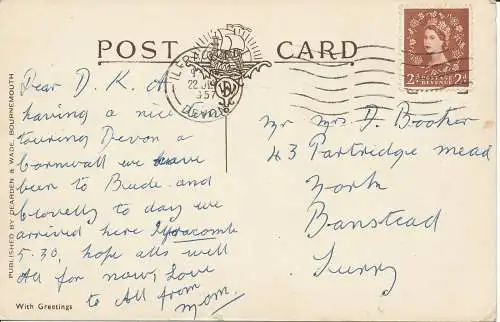 POST CARD
ILFRACOMBE
22 JLY
1957
DEVON
POSTAGE
REVENUE
2D 2D
Dear D. K. A
having a nice
touring Devon a
Cornwall we have
been to Bude and
Clovelly to day we
arrived here Ilfracomb
5.30, hope alls well
All for now, Love
to All from
mom.
Mr Mrs D. Booker
43 Partridge mead
North
Banstead
Surry
PUBLISHED BY DEARDEN & WADE, BOURNEMOUTH
With Greetings